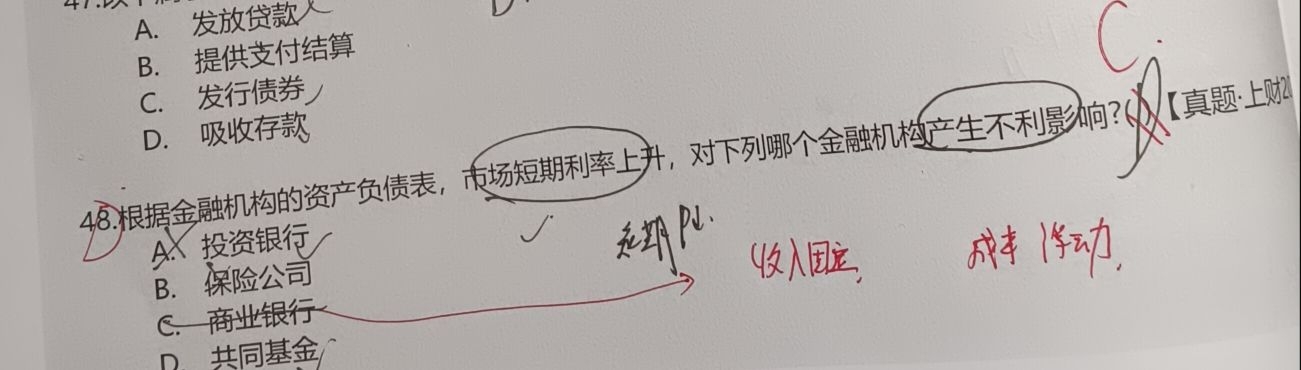 A. 发放贷款
B. 提供支付结算
C. 发行债券
D. 吸收存款
C.
48.根据金融机构的资产负债表，市场短期利率上升，对下列哪个金融机构产生不利影响?( )【真题·上财20
A. 投资银行
B. 保险公司
C. 商业银行
D. 共同基金
短期P↓.
收入固定,
成本浮动,